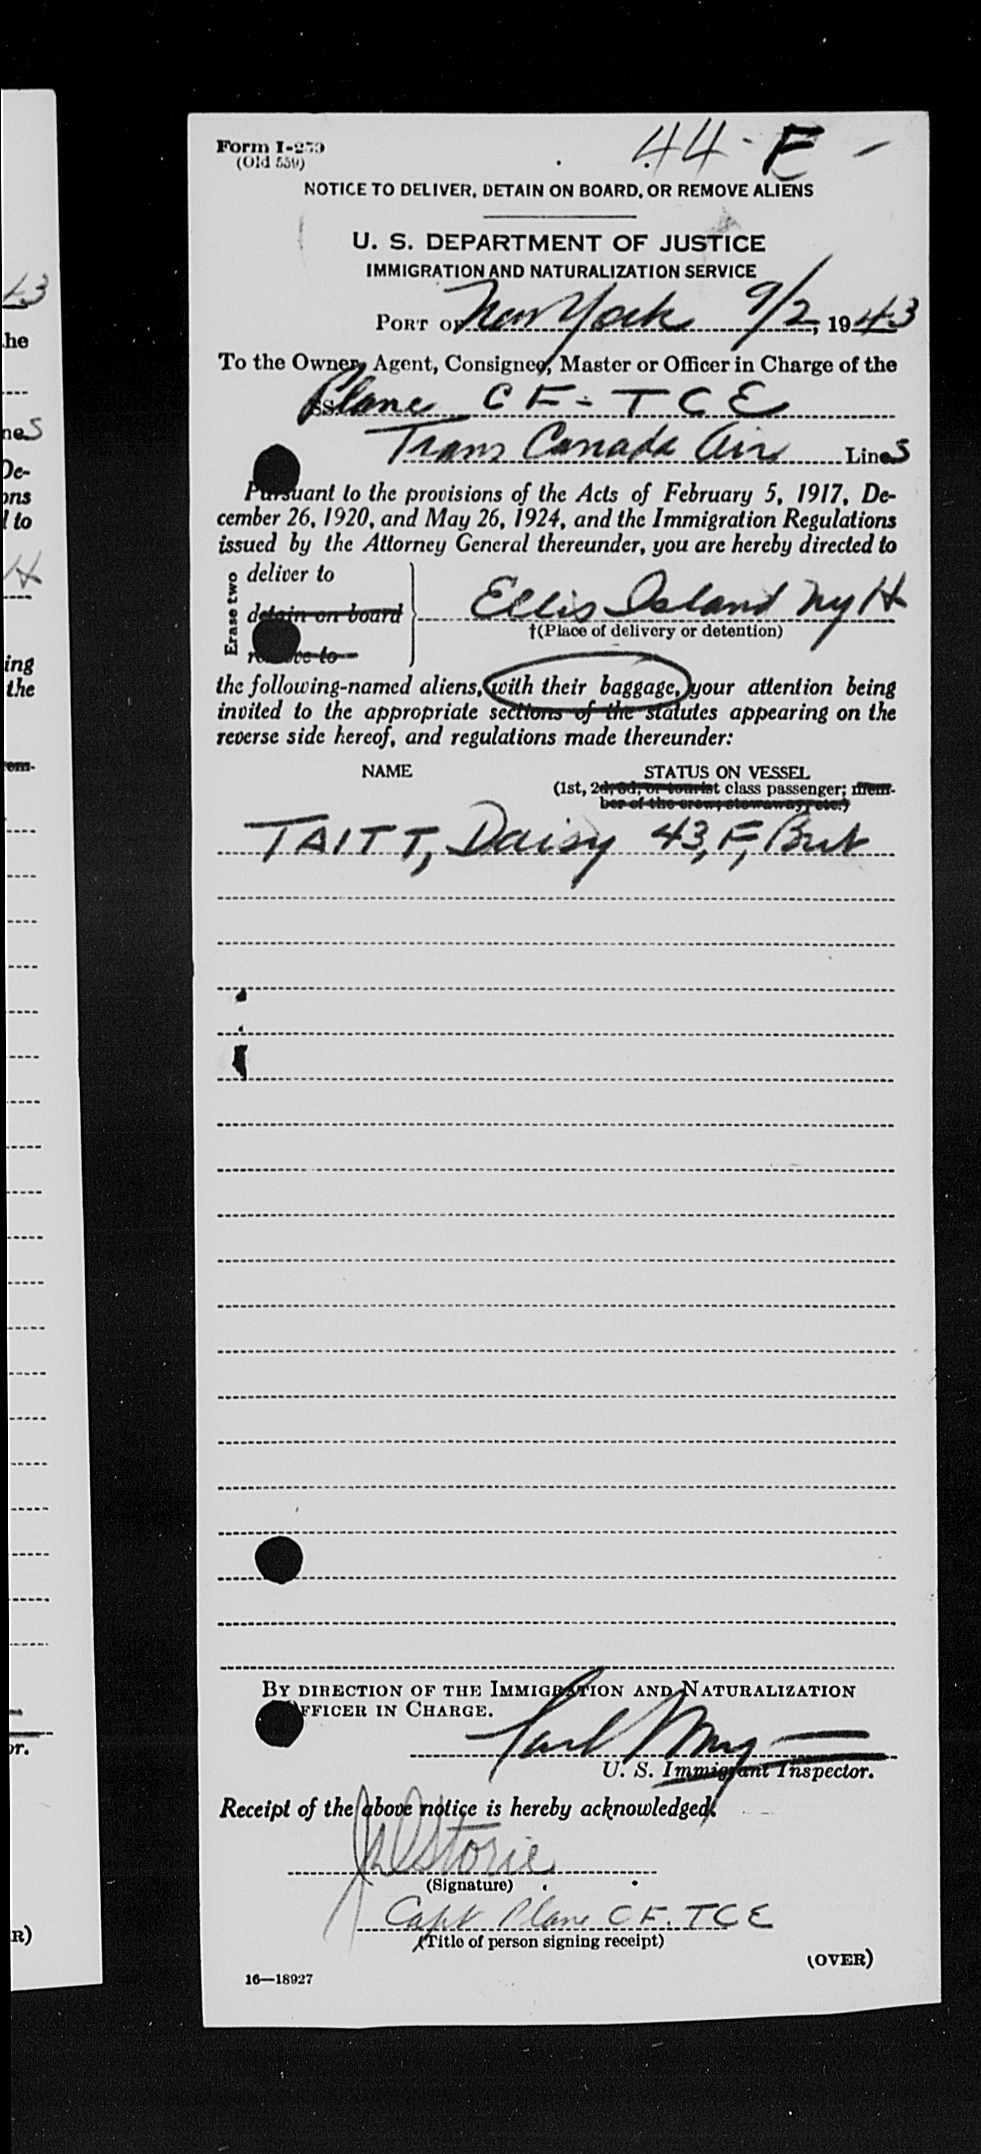 44-F -
Form I-259
(Old 559)
NOTICE TO DELIVER, DETAIN ON BOARD, OR REMOVE ALIENS
U. S. DEPARTMENT OF JUSTICE
IMMIGRATION AND NATURALIZATION SERVICE
PORT OF New York 9/2, 1943
To the Owner, Agent, Consignee, Master or Officer in Charge of the
SS Plane CF-TCE
Trans Canada Air Lines
Pursuant to the provisions of the Acts of February 5, 1917, De-
cember 26, 1920, and May 26, 1924, and the Immigration Regulations
issued by the Attorney General thereunder, you are hereby directed to
Erase two
deliver to
detain on board
remove to
Ellis Island NyH
†(Place of delivery or detention)
the following-named aliens, with their baggage, your attention being
invited to the appropriate sections of the statutes appearing on the
reverse side hereof, and regulations made thereunder:
NAME STATUS ON VESSEL
(1st, 2d, 3d, or tourist class passenger; mem-
ber of the crew; stowaway, etc.)
TAITT, Daisy 43, F, Brit
BY DIRECTION OF THE IMMIGRATION AND NATURALIZATION
OFFICER IN CHARGE.
U. S. Immigrant Inspector.
Receipt of the above notice is hereby acknowledged.
Storie
(Signature)
Capt Plane CF. TCE
(Title of person signing receipt)
(OVER)
16—18927
43
he
nes
De-
ons
l to
H
ing
the
em-
or.
R)